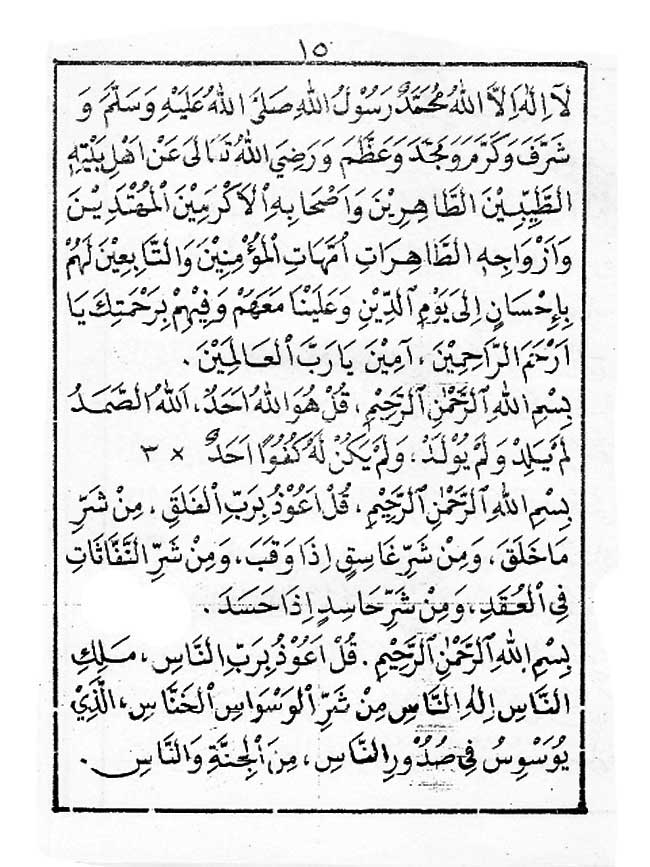 ١٥
لَآ اِلٰهَ اِلَّا اللهُ مُحَمَّدٌ رَسُوْلُ اللهِ صَلَّى اللهُ عَلَيْهِ وَسَلَّمَ وَ
شَرَّفَ وَكَرَّمَ وَمَجَّدَ وَعَظَّمَ وَرَضِيَ اللهُ تَعَالَى عَنْ اَهْلِ بَيْتِهِ
الطَّيِّبِيْنَ الطَّاهِرِيْنَ وَاَصْحَابِهِ الْاَكْرَمِيْنَ الْمُهْتَدِيْنَ
وَاَزْوَاجِهِ الطَّاهِرَاتِ اُمَّهَاتِ الْمُؤْمِنِيْنَ وَالتَّابِعِيْنَ لَهُمْ
بِاِحْسَانٍ اِلَى يَوْمِ الدِّيْنِ وَعَلَيْنَا مَعَهُمْ وَفِيْهِمْ بِرَحْمَتِكَ يَا
اَرْحَمَ الرَّاحِمِيْنَ ، آمِيْنَ يَا رَبَّ الْعَالَمِيْنَ .
بِسْمِ اللهِ الرَّحْمٰنِ الرَّحِيْمِ ، قُلْ هُوَ اللهُ اَحَدٌ ، اَللهُ الصَّمَدُ
لَمْ يَلِدْ وَلَمْ يُوْلَدْ ، وَلَمْ يَكُنْ لَهُ كُفُوًا اَحَدٌ × ٣
بِسْمِ اللهِ الرَّحْمٰنِ الرَّحِيْمِ ، قُلْ اَعُوْذُ بِرَبِّ الْفَلَقِ ، مِنْ شَرِّ
مَا خَلَقَ ، وَمِنْ شَرِّ غَاسِقٍ اِذَا وَقَبَ ، وَمِنْ شَرِّ النَّفَّاثَاتِ
فِي الْعُقَدِ ، وَمِنْ شَرِّ حَاسِدٍ اِذَا حَسَدَ .
بِسْمِ اللهِ الرَّحْمٰنِ الرَّحِيْمِ . قُلْ اَعُوْذُ بِرَبِّ النَّاسِ ، مَلِكِ
النَّاسِ اِلٰهِ النَّاسِ مِنْ شَرِّ الْوَسْوَاسِ الْخَنَّاسِ ، الَّذِيْ
يُوَسْوِسُ فِي صُدُوْرِ النَّاسِ ، مِنَ الْجِنَّةِ وَالنَّاسِ .